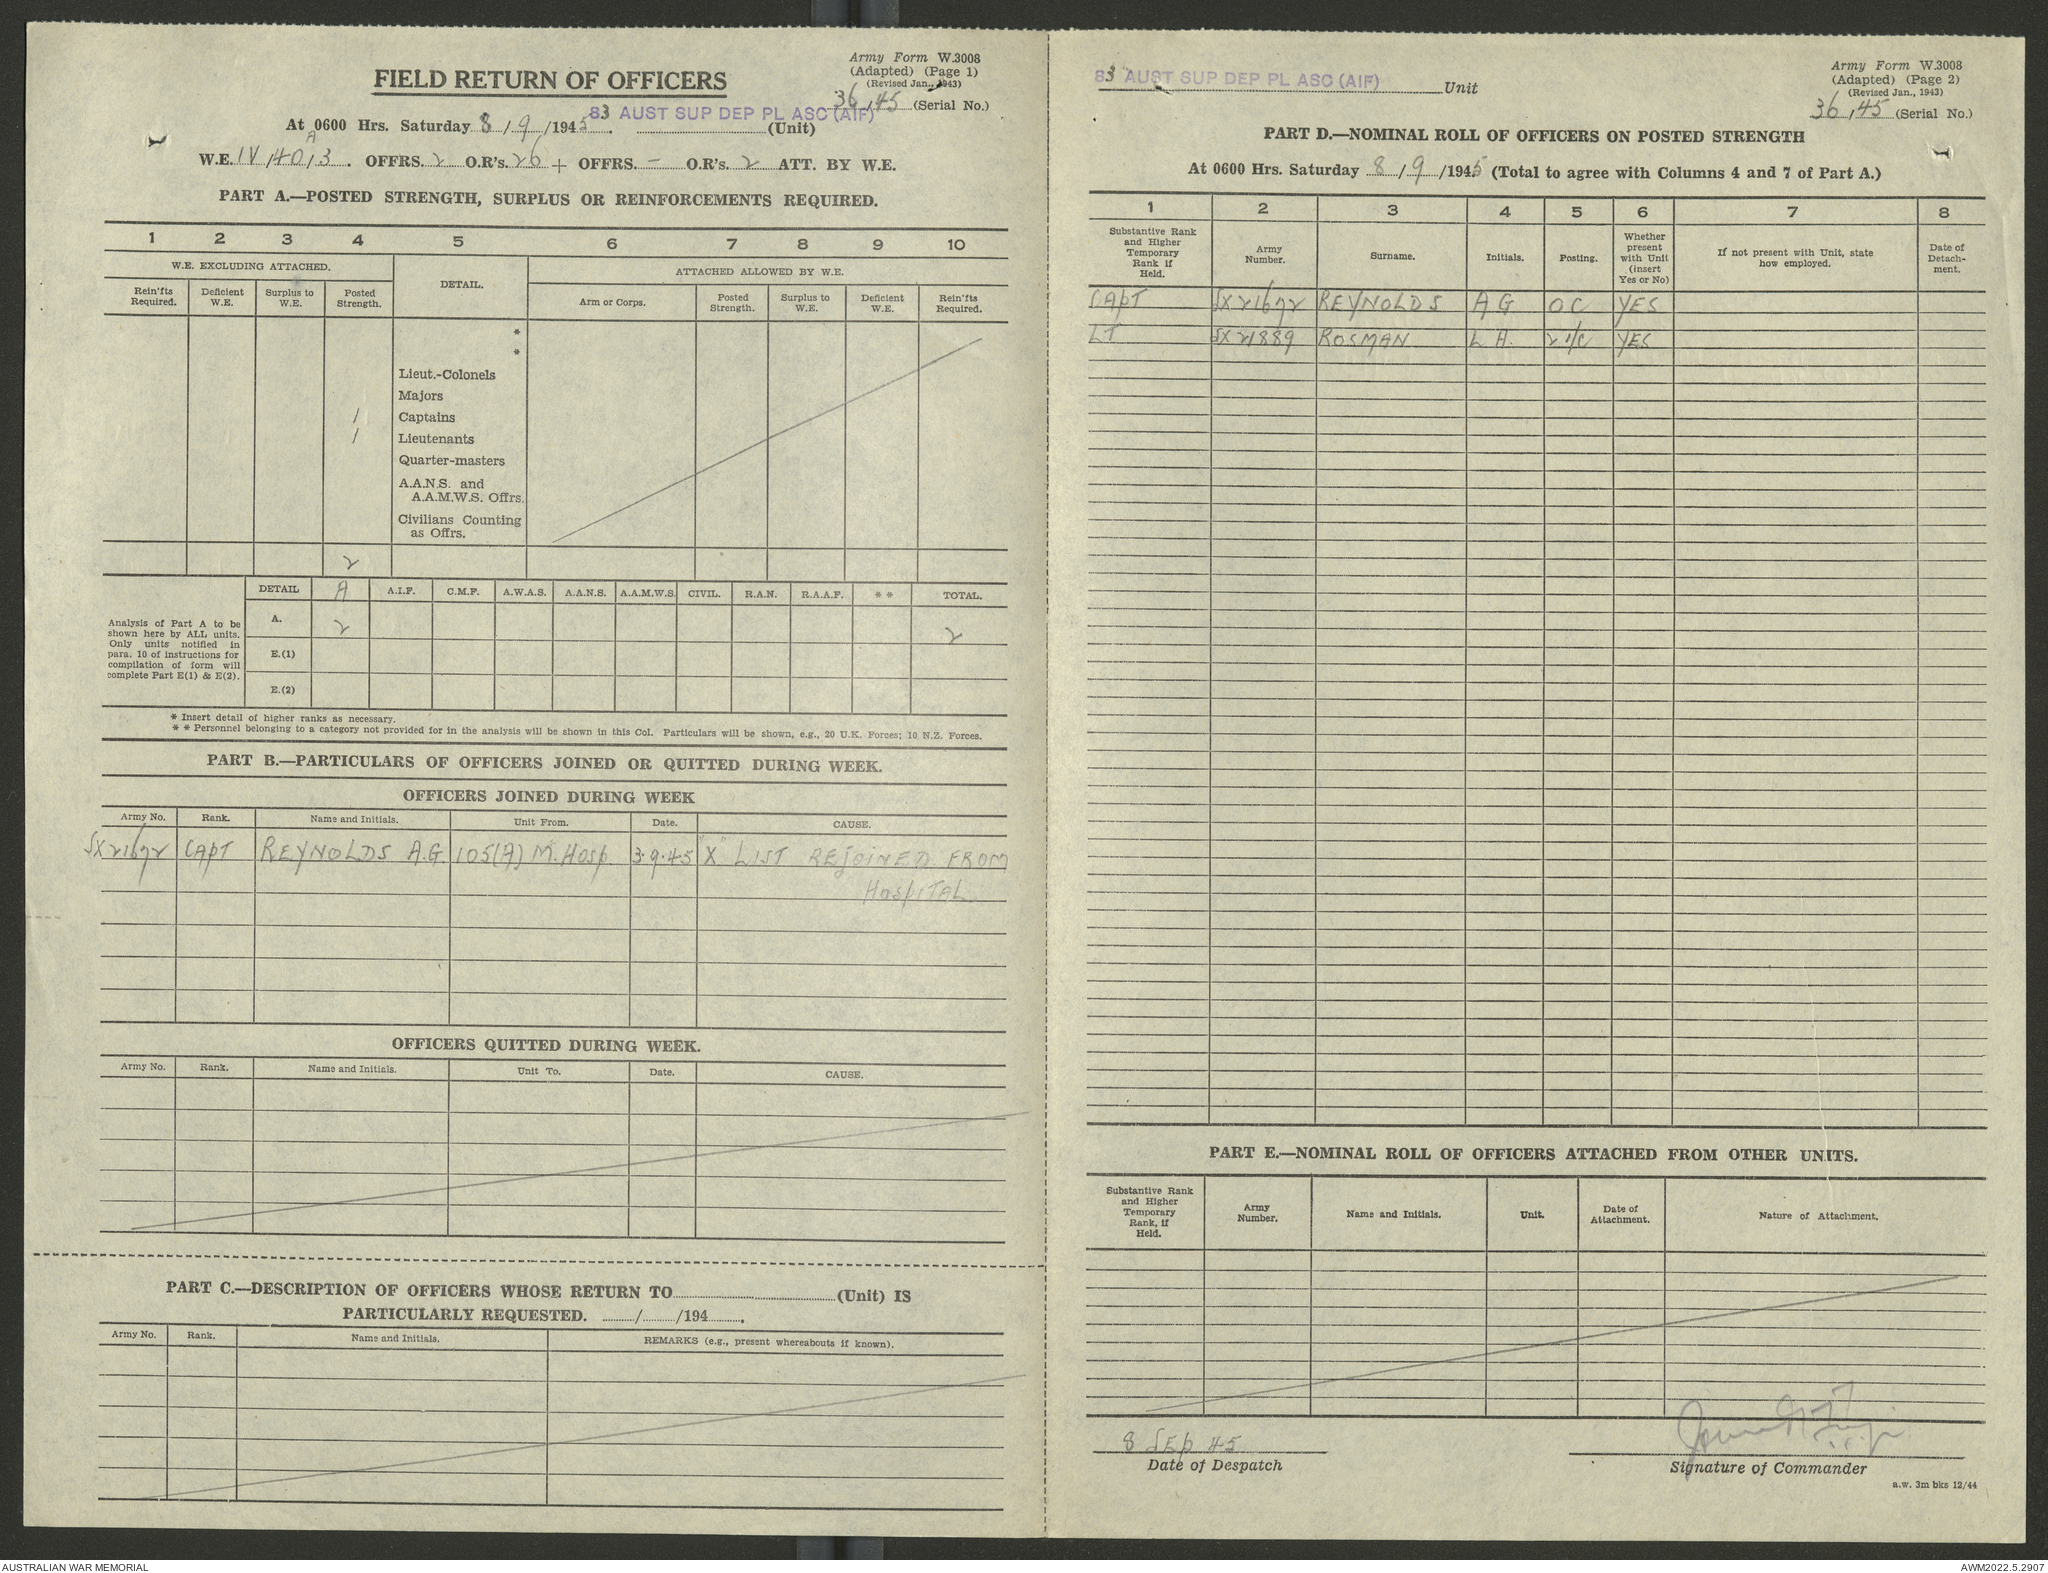 Army Form W.3008
(Adapted) (Page 1)
(Revised Jan., 1943)
FIELD RETURN OF OFFICERS
36/45 (Serial No.)
83 AUST SUP DEP PL ASC (AIF)
At 0600 Hrs. Saturday 8/9/1945. (Unit)
W.E. IV/40A/3. OFFRS. 2 O.R's. 26 + OFFRS. - O.R's. 2 ATT. BY W.E.
PART A.—POSTED STRENGTH, SURPLUS OR REINFORCEMENTS REQUIRED.
1 2 3 4 5 6 7 8 9 10
W.E. EXCLUDING ATTACHED. DETAIL. ATTACHED ALLOWED BY W.E.
Rein'fts Required. Deficient W.E. Surplus to W.E. Posted Strength. Arm or Corps. Posted Strength. Surplus to W.E. Deficient W.E. Rein'fts Required.
*
*
Lieut.-Colonels
Majors
1 Captains
1 Lieutenants
Quarter-masters
A.A.N.S. and
A.A.M.W.S. Offrs.
Civilians Counting
as Offrs.
2
DETAIL A A.I.F. C.M.F. A.W.A.S. A.A.N.S. A.A.M.W.S. CIVIL. R.A.N. R.A.A.F. ** TOTAL.
Analysis of Part A to be
shown here by ALL units.
Only units notified in
para. 10 of instructions for
compilation of form will
complete Part E(1) & E(2).
A. 2 2
E.(1)
E.(2)
* Insert detail of higher ranks as necessary.
** Personnel belonging to a category not provided for in the analysis will be shown in this Col. Particulars will be shown, e.g., 20 U.K. Forces; 10 N.Z. Forces.
PART B.—PARTICULARS OF OFFICERS JOINED OR QUITTED DURING WEEK.
OFFICERS JOINED DURING WEEK
Army No. Rank. Name and Initials. Unit From. Date. CAUSE.
SX21672 CAPT REYNOLDS A.G. 105(A) M. Hosp 3.9.45 "X" LIST REJOINED FROM
HOSPITAL
OFFICERS QUITTED DURING WEEK.
Army No. Rank. Name and Initials. Unit To. Date. CAUSE.
PART C.—DESCRIPTION OF OFFICERS WHOSE RETURN TO (Unit) IS
PARTICULARLY REQUESTED. / /194 .
Army No. Rank. Name and Initials. REMARKS (e.g., present whereabouts if known).
Army Form W.3008
(Adapted) (Page 2)
(Revised Jan., 1943)
83 AUST SUP DEP PL ASC (AIF) Unit
36/45 (Serial No.)
PART D.—NOMINAL ROLL OF OFFICERS ON POSTED STRENGTH
At 0600 Hrs. Saturday 8/9/1945 (Total to agree with Columns 4 and 7 of Part A.)
1 2 3 4 5 6 7 8
Substantive Rank and Higher Temporary Rank if Held. Army Number. Surname. Initials. Posting. Whether present with Unit (insert Yes or No) If not present with Unit, state how employed. Date of Detachment.
CAPT SX21672 REYNOLDS A G OC YES
LT SX21889 ROSMAN L H. 2 I/C YES
PART E.—NOMINAL ROLL OF OFFICERS ATTACHED FROM OTHER UNITS.
Substantive Rank and Higher Temporary Rank, if Held. Army Number. Name and Initials. Unit. Date of Attachment. Nature of Attachment.
8 SEP 45
Date of Despatch
Signature of Commander
a.w. 3m bks 12/44
AUSTRALIAN WAR MEMORIAL
AWM2022.5.2907